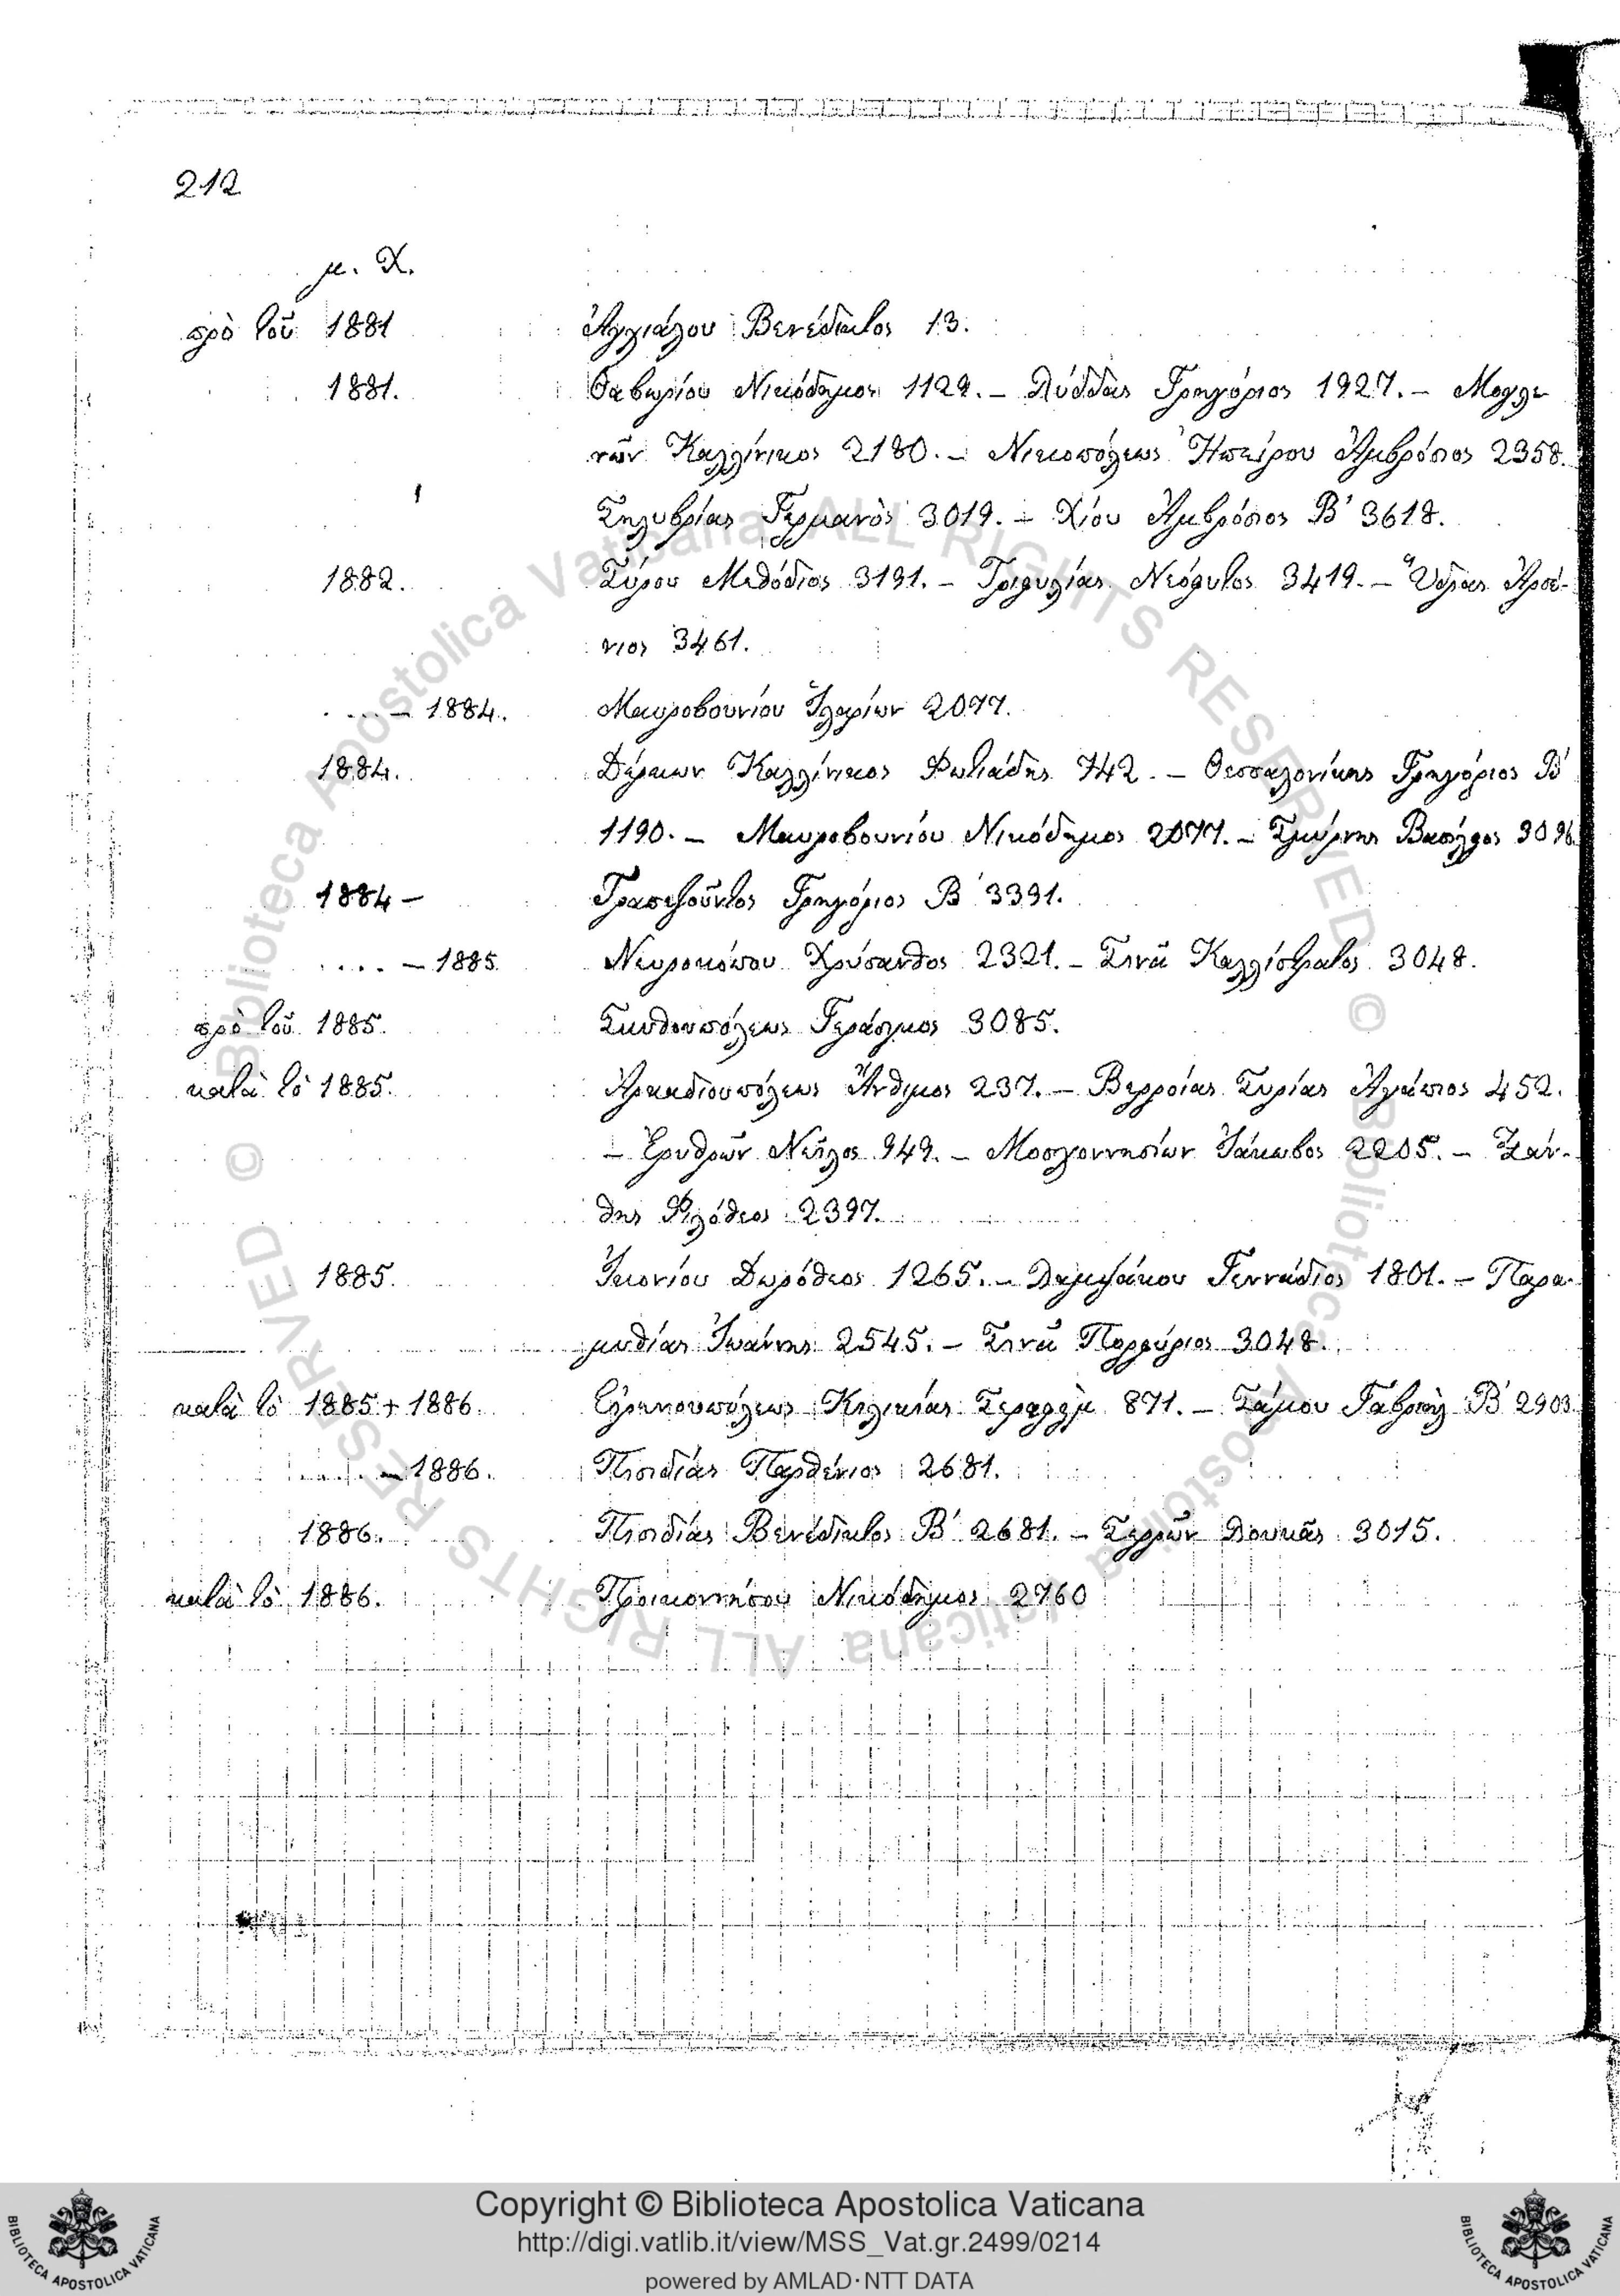 212
μ. Χ.
πρὸ τοῦ 1881 Ἀγχιάλου Βενέδικτος 13.
1881. Θαβωρίου Νικόδημος 1129. – Λύδδας Γρηγόριος 1927. – Μογλε
νῶν Καλλίνικος 2180. – Νικοπόλεως Ἠπείρου Ἀμβρόσιος 2358.
Σηλυβρίας Γερμανὸς 3019. – Χίου Ἀμβρόσιος Β΄ 3618.
1882. Σύρου Μεθόδιος 3191. – Τριφυλίας Νεόφυτος 3419. – Ὕδρας Ἀρσέ-
νιος 3461.
.... – 1884. Μαυροβουνίου Ἱλαρίων 2077.
1884. Δέρκων Καλλίνικος Φωτιάδης 742. – Θεσσαλονίκης Γρηγόριος Β΄
1190. – Μαυροβουνίου Νικόδημος 2077. – Σμύρνης Βασίλειος
1884 – Τραπεζοῦντος Γρηγόριος Β΄ 3391.
.... – 1885 Νευροκόπου Χρύσανθος 2321. – Σινᾶ Καλλίστρατος 3048.
πρὸ τοῦ 1885. Σκυθουπόλεως Γεράσιμος 3085.
κατὰ τὸ 1885. Ἀρκαδιουπόλεως Ἄνθιμος 237. – Βερροίας Συρίας Ἀγάπιος 452.
– Ἐρυθρῶν Νεῖλος 949. – Μοσχοννησίων Ἰάκωβος 2205. – Ξάν-
θης Φιλόθεος 2397.
1885. Ἰκονίου Δωρόθεος 1265. – Λαμψάκου Γεννάδιος 1801. – Παρα-
μυθίας Ἰωάννης 2545. – Σινᾶ Πορφύριος 3048.
κατὰ τὸ 1885 + 1886. Εἰρηνουπόλεως Κιλικίας Σεραφεὶμ 871. – Σάμου Γαβριὴλ Β΄ 2903.
.... – 1886. Πισιδίας Παρθένιος 2681.
1886. Πισιδίας Βενέδικτος Β΄ 2681. – Σερρῶν Λουκᾶς 3015.
κατὰ τὸ 1886. Προικοννήσου Νικόδημος 2760
Copyright © Biblioteca Apostolica Vaticana
http://digi.vatlib.it/view/MSS_Vat.gr.2499/0214
powered by AMLAD·NTT DATA
BIBLIOTECA APOSTOLICA VATICANA
BIBLIOTECA APOSTOLICA VATICANA
© Biblioteca Apostolica Vaticana ALL RIGHTS RESERVED © Biblioteca Apostolica Vaticana ALL RIGHTS RESERVED